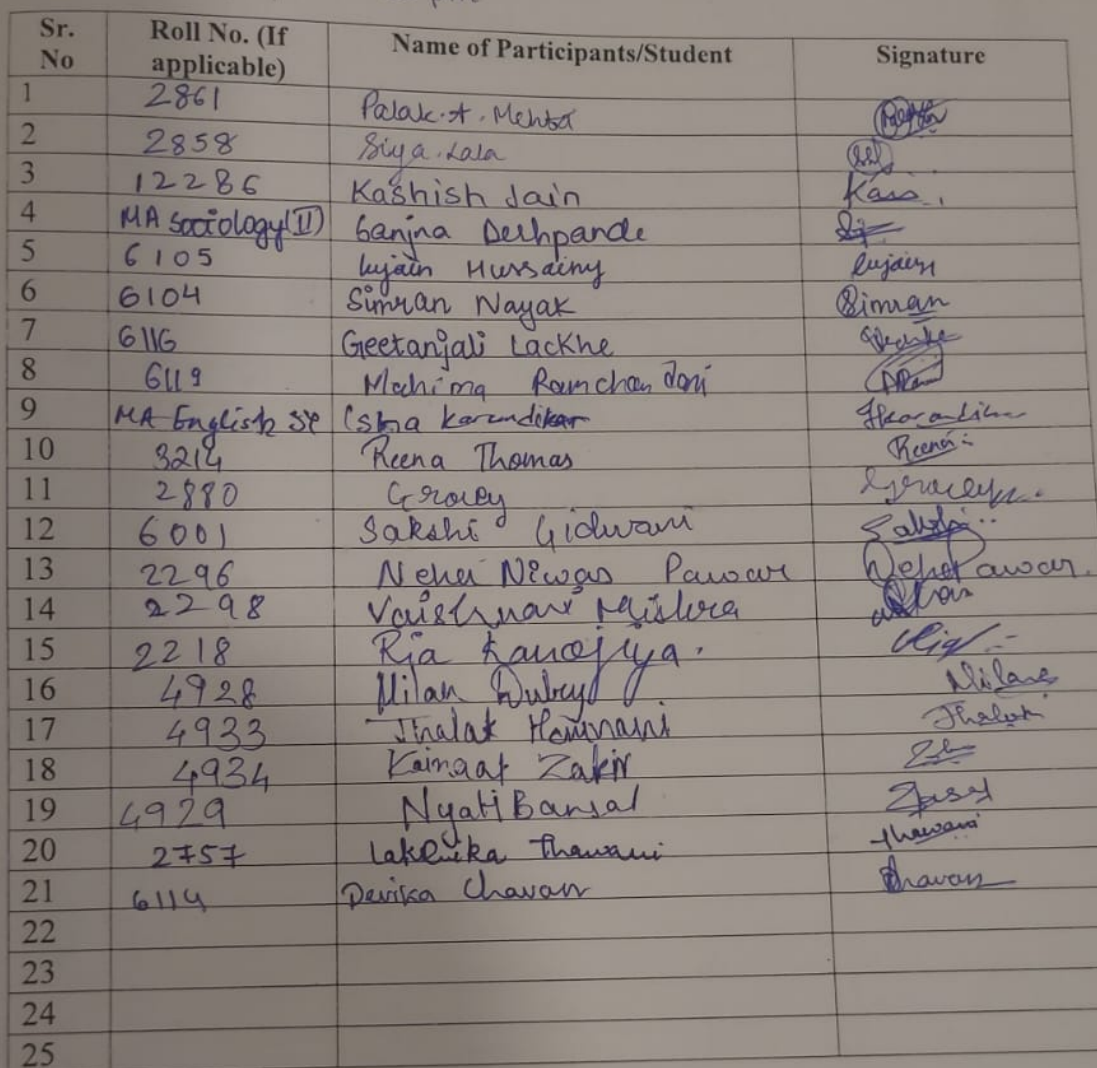 Sr. No Roll No. (If applicable) Name of Participants/Student Signature
1 2861 Palak.A.Mehta
2 2858 Siya.Lala
3 12286 Kashish Jain
4 MA Sociology(II) Sanjna Deshpande
5 6105 lujain Hussainy lujain
6 6104 Simran Nayak Simran
7 6116 Geetanjali Lackhe
8 6119 Mahima Ramchandani
9 MA English SY Isha Karandikar Ikarandikar
10 3214 Reena Thomas Reena
11 2880 Gracey
12 6001 Sakshi Gidwani Sakshi
13 2296 Neha Niwas Pawar NehaPawar.
14 2298 Vaishnavi Mishra
15 2218 Ria Kanojiya.
16 4928 Milan Dubey Milan
17 4933 Jhalak Jhalak
18 4934 Kainaat Zakir
19 4929 Nyati Bansal
20 2757 Thawani Thawani
21 6114 Devika Chavan Chavan
22
23
24
25